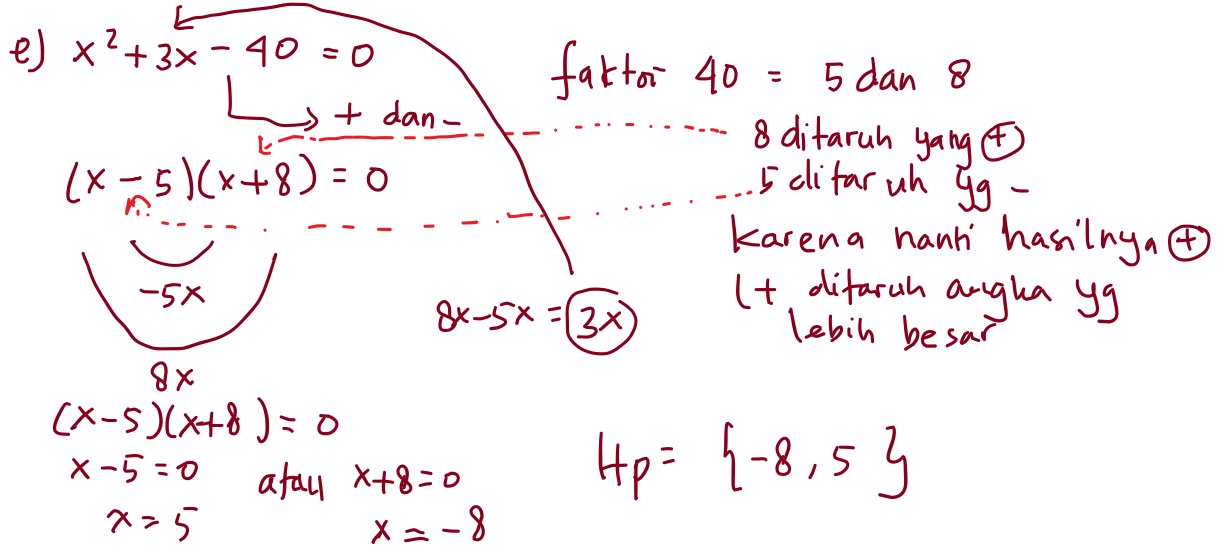 e) x² + 3x - 40 = 0
+ dan -
(x - 5)(x + 8) = 0
-5x
8x
8x - 5x = 3x
faktor 40 = 5 dan 8
8 ditaruh yang +
5 ditaruh yg -
karena nanti hasilnya +
(+ ditaruh angka yg
lebih besar
(x - 5)(x + 8) = 0
x - 5 = 0 atau x + 8 = 0
x = 5 x = -8
Hp = {-8, 5}